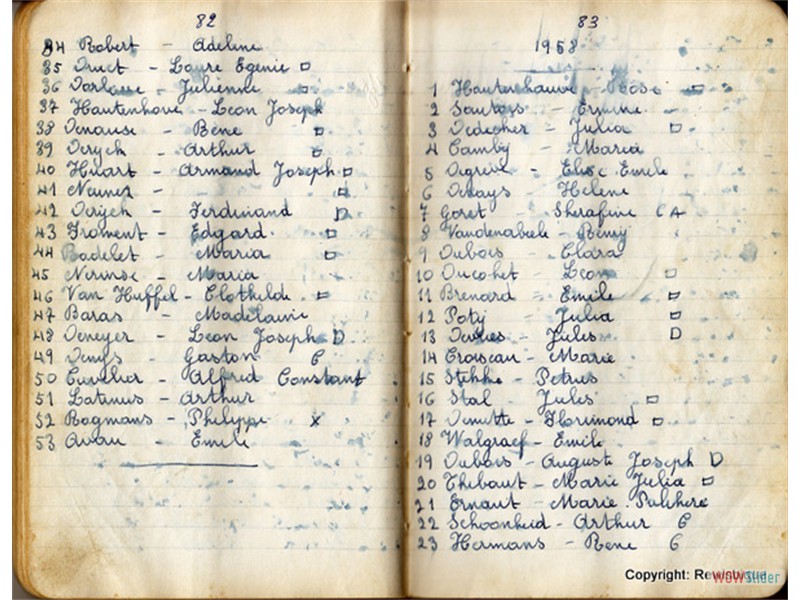 82
34 Robert - Adeline
35 Druet - Laure Egenie □
36 Dorlene - Julienne □
37 Hautenhove - Leon Joseph x
38 Denause - Rene □
39 Deryck - Arthur □
40 Huart - Armand Joseph □
41 Neunez - □
42 Deryck - Ferdinand D
43 Froment - Edgard □
44 Badelet - Maria □
45 Nerinse - Maria
46 Van Huffel - Clothilde □
47 Baras - Madelaine
48 Deneyer - Leon Joseph D
49 Denys - Gaston C
50 Cuvelier - Alfred Constant
51 Latinus - Arthur
52 Bogmans - Philippe x
53 Avau - Emile
83
1958
1 Hautenhauve - □
2 Sautois - Ermine
3 Dedecker - Julia □
4 Camby - Maria
5 Emile
6 Helene
7 Goret - Sherafine C A
8 Vandenabiele - Remy
9 Dubois - Clara
10 Ducochet - Leon □
11 Brenard - Emile □
12 Poty - Julia □
13 Devries - Jules D
14 Croiseau - Marie
15 Stehke - Petrus
16 Stal - Jules □
17 Demette - Florimond □
18 Walgraef - Emile
19 Dubois - Auguste Joseph D
20 Thebaut - Marie Julia □
21 Ernaut - Marie
22 Schoonheid - Arthur C
23 Hermans - Rene C
Copyright:
WOWSlider